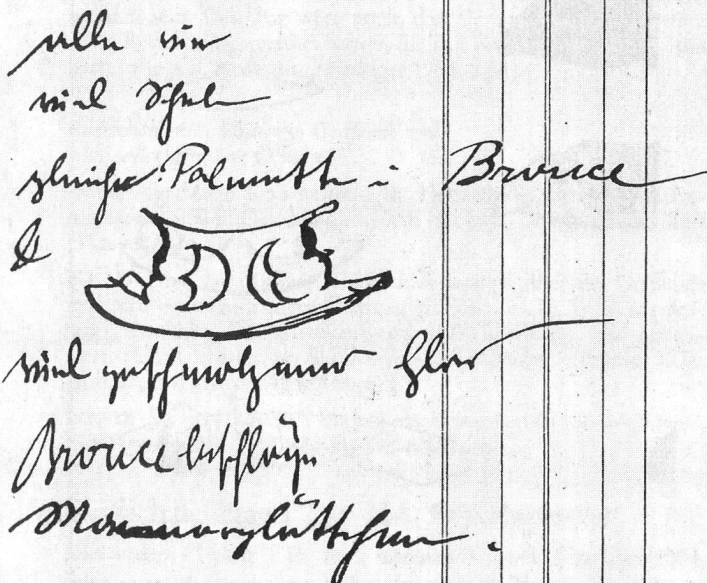 alle
viel
gleiche Palmette i. Bronce
&
viel geschmolzenes Glas
Broncebeschläge
Marmorplättchen.